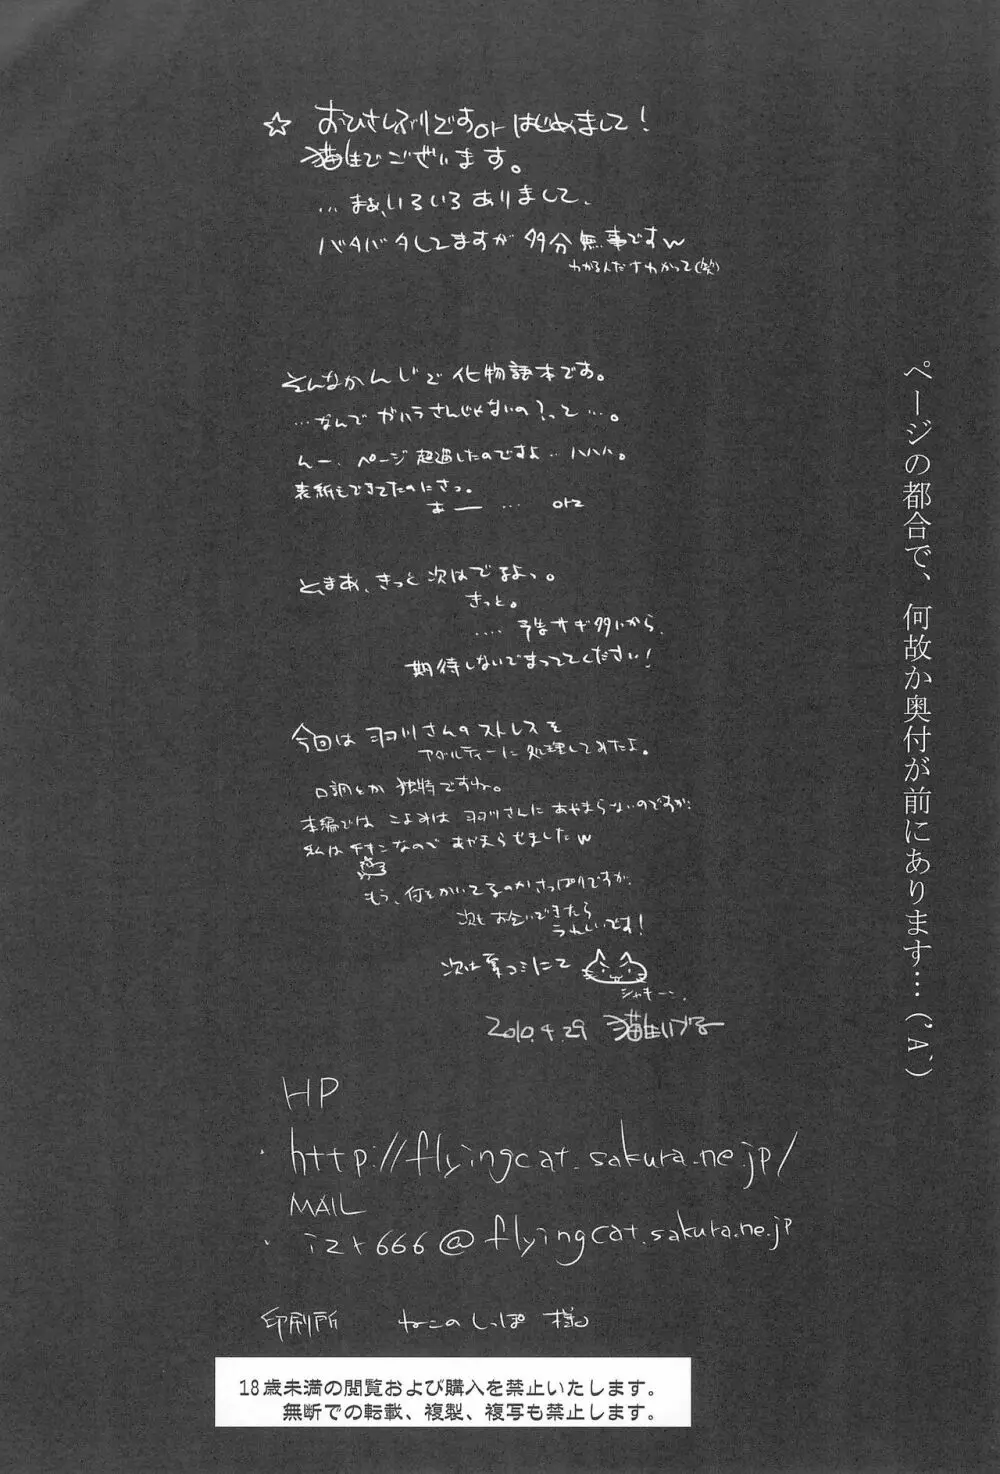 ☆ おひさしぶりですorはじめまして!
猫生でございます。
…まぁ、いろいろありまして、
バタバタしてますが多分無事ですw
わかるんだサわかって(笑)
そんなかんじで化物語本です。
…なんでガハラさんじゃないの?って…。
んー、ページ超過したのですよ…ハハハ。
表紙もできてたのにさっ。
あー … orz
とまあ、きっと次はでるよっ。
きっと。
‥‥ 予告サギ多いから、
期待しないでまっててください!
今回は羽川さんのストレスを
アダルティーに処理してみたよ。
口調とか独特ですね。
本編ではこよみは羽川さんにあやまらないのですが、
私はチキンなのであやまらせましたw
もう、何をかいてるのかさっぱりですが、
次もお会いできたら
うれしいです!
次は夏コミにて
シャキーン、
2010.4.29 猫生いづる
HP
・http://flyingcat.sakura.ne.jp/
MAIL
・izr666@flyingcat.sakura.ne.jp
印刷所 ねこのしっぽ 様
18歳未満の閲覧および購入を禁止いたします。
無断での転載、複製、複写も禁止します。
ページの都合で、何故か奥付が前にあります…('A`)